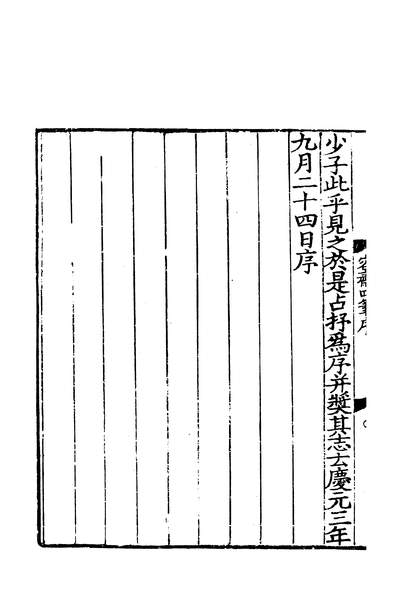 容齋四筆序
少子此乎見之於是占抒爲序并獎其志云慶元三年
九月二十四日序